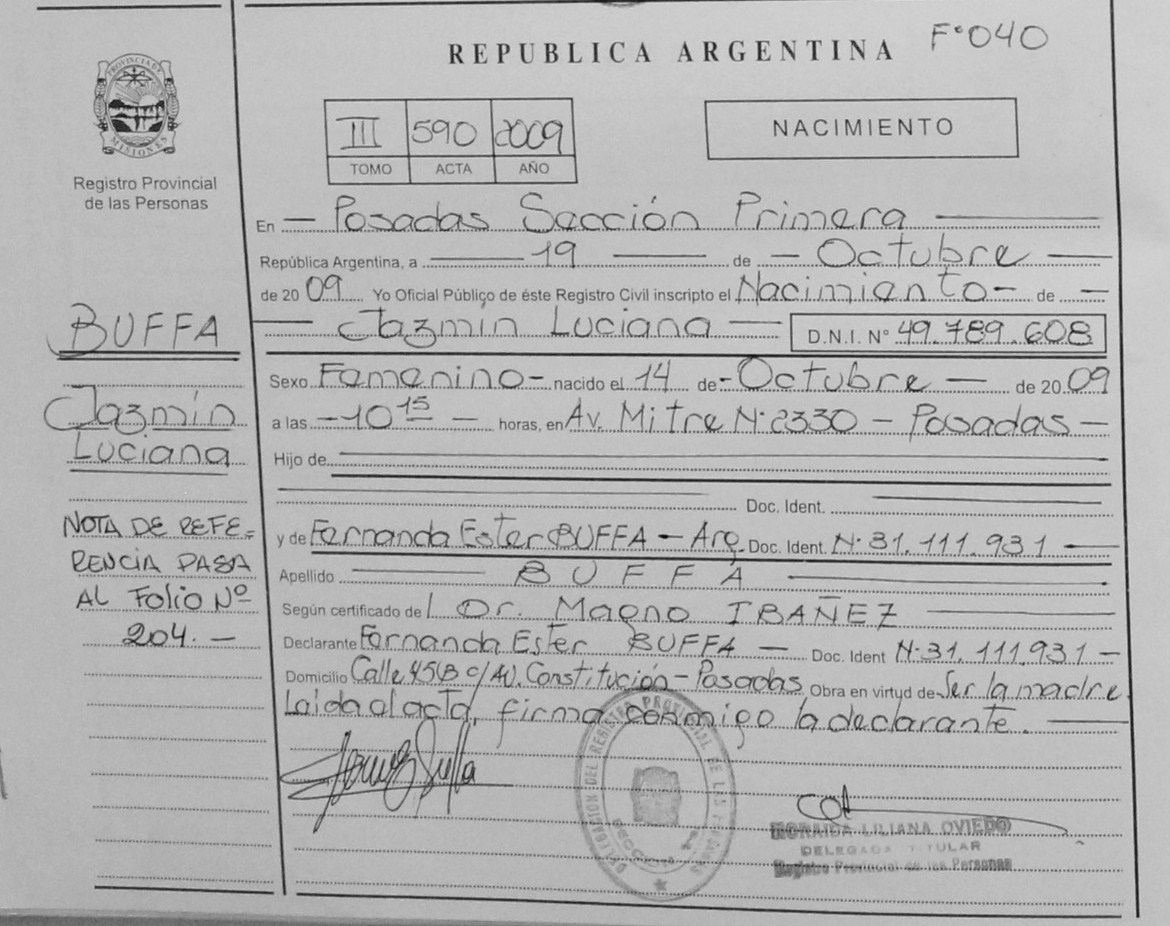 REPUBLICA ARGENTINA
F°040
PROVINCIA DE
MISIONES
Registro Provincial
de las Personas
III 590 2009
TOMO ACTA AÑO
NACIMIENTO
En — Posadas Sección Primera —
República Argentina, a — 19 — de — Octubre —
de 20 09 Yo Oficial Público de éste Registro Civil inscripto el Nacimiento — de —
— Jazmín Luciana — D.N.I. Nº 49.789.608
Sexo Femenino — nacido el 14 de — Octubre — de 20 09
a las — 10 15 — horas, en Av. Mitre N° 2330 — Posadas —
Hijo de
Doc. Ident.
y de Fernanda Ester BUFFA — Arg. Doc. Ident. N° 31.111.931 —
Apellido — BUFFA —
Según certificado de l Dr. Magno IBAÑEZ —
Declarante Fernanda Ester BUFFA — Doc. Ident N° 31.111.931 —
Domicilio Calle 45(B c/ AV. Constitución — Posadas Obra en virtud de Ser la madre.
Leida el acta, firma conmigo la declarante. —
BUFFA
Jazmín
Luciana
NOTA DE REFE=
RENCIA PASA
AL FOLIO Nº
204. —
DELEGACION DEL REGISTRO PROVINCIAL DE LAS PERSONAS
MORAIDA LILIANA OVIEDO
DELEGADA TITULAR
Registro Provincial de las Personas